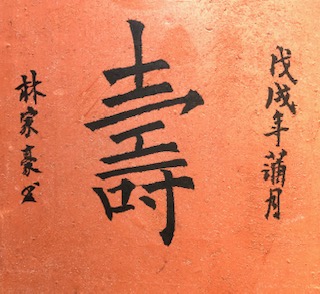 戊戌年蒲月
壽
林家豪书